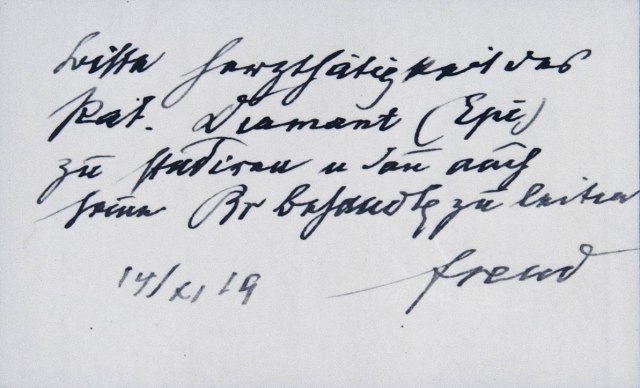 Bitte Herzthätigkeit des
Pat. Diamant (Epi)
zu studiren u dan auch
seine Br behandlg zu leiten
14/XI 19 Freud